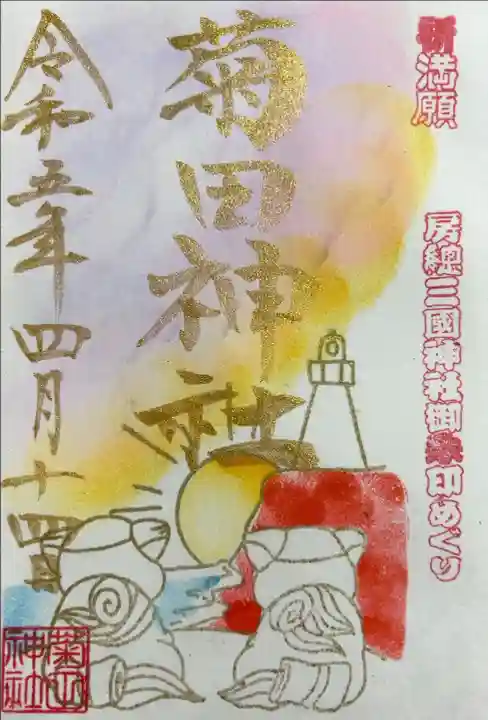 祈満願
房總三國神社御朱印めぐり
菊田神社
令和五年四月十四日
菊田
神社